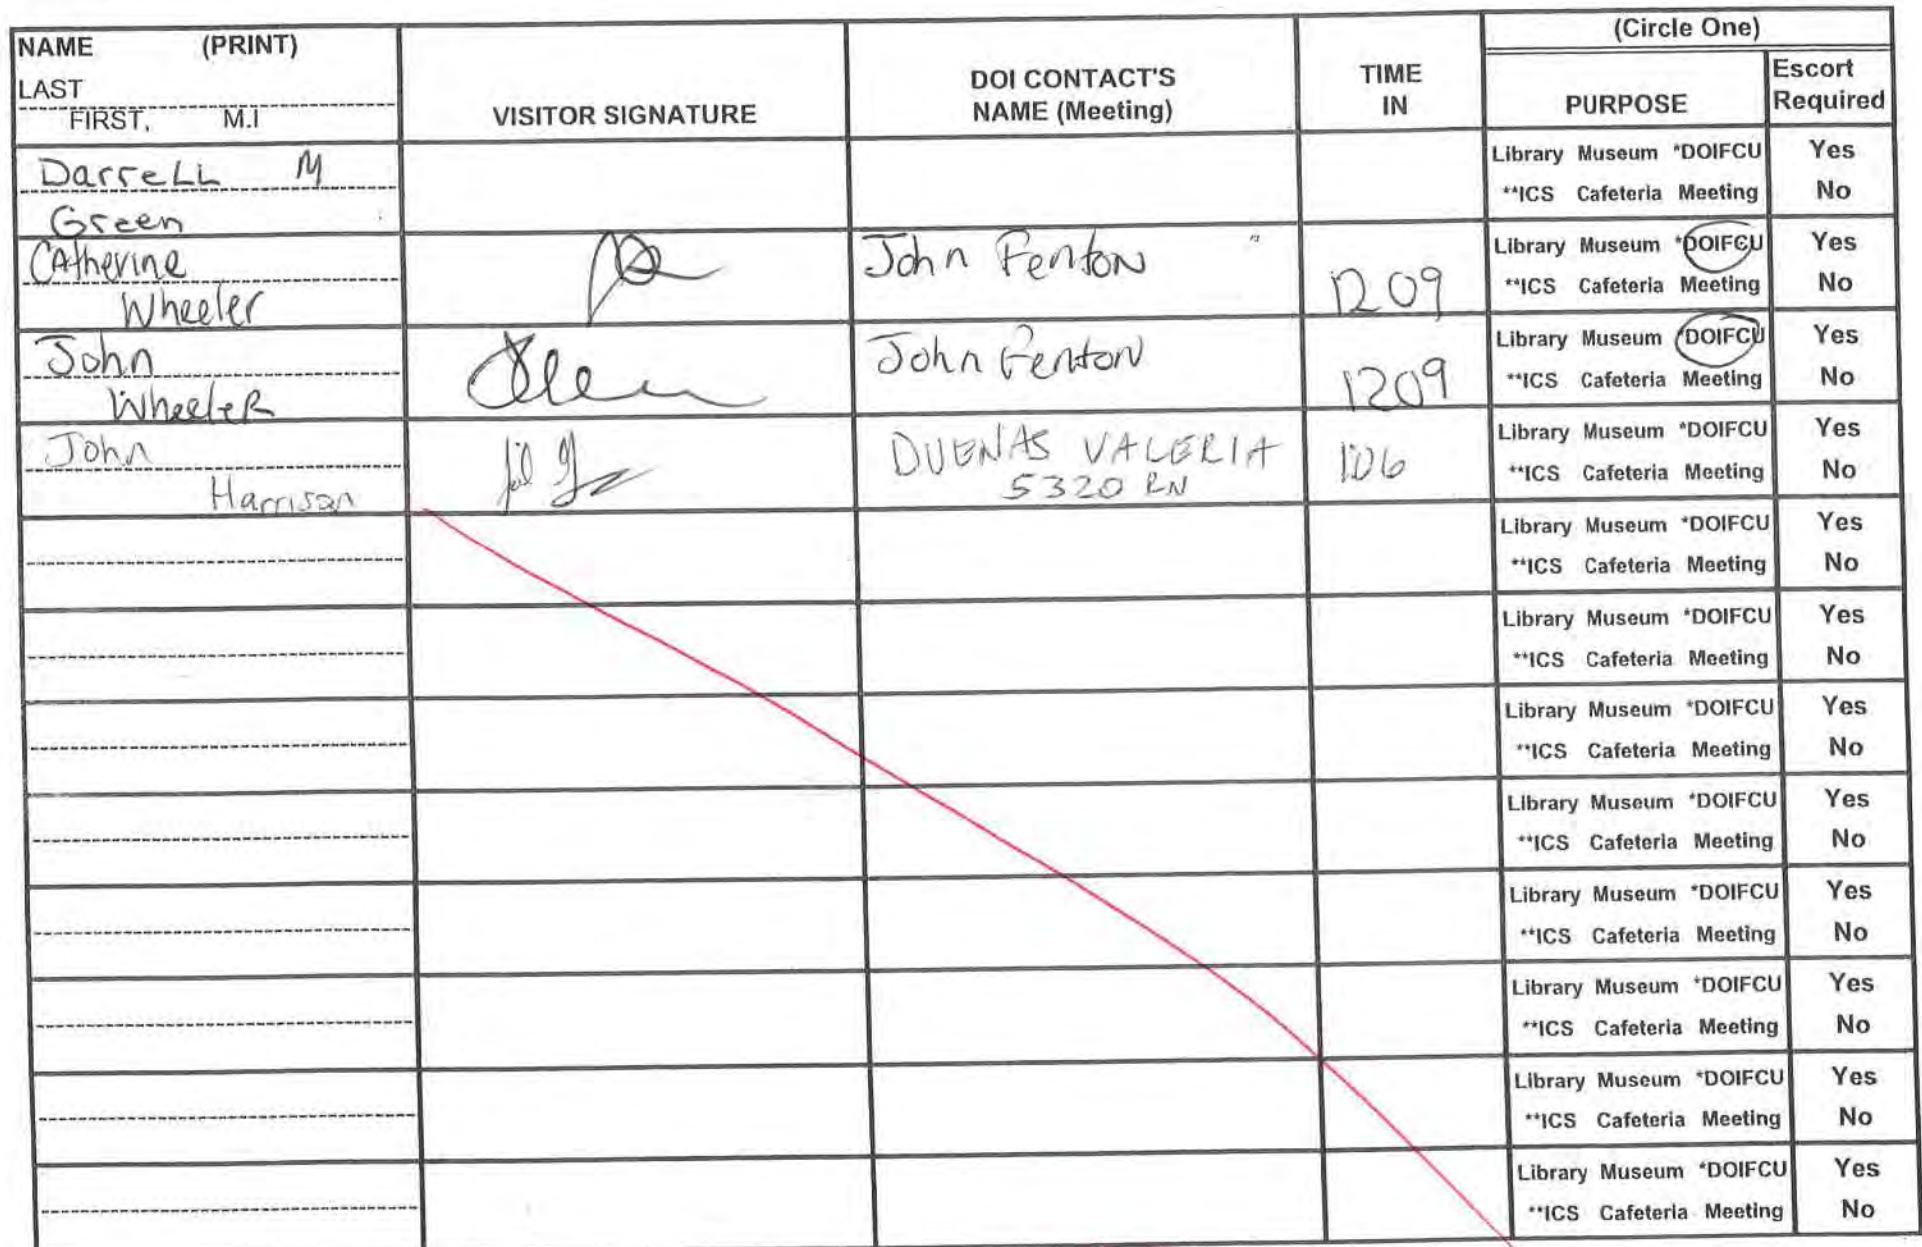 NAME (PRINT)
LAST
FIRST, M.I
VISITOR SIGNATURE
DOI CONTACT'S
NAME (Meeting)
TIME
IN
(Circle One)
PURPOSE
Escort
Required
DarreLL M
Green
Library Museum *DOIFCU Yes
**ICS Cafeteria Meeting No
Catherine
Wheeler
John Fenton
1209
Library Museum *DOIFCU Yes
**ICS Cafeteria Meeting No
John
Wheeler
John Fenton
1209
Library Museum *DOIFCU Yes
**ICS Cafeteria Meeting No
John
Harrison
DUENAS VALERIA
5320
Library Museum *DOIFCU Yes
**ICS Cafeteria Meeting No
Library Museum *DOIFCU Yes
**ICS Cafeteria Meeting No
Library Museum *DOIFCU Yes
**ICS Cafeteria Meeting No
Library Museum *DOIFCU Yes
**ICS Cafeteria Meeting No
Library Museum *DOIFCU Yes
**ICS Cafeteria Meeting No
Library Museum *DOIFCU Yes
**ICS Cafeteria Meeting No
Library Museum *DOIFCU Yes
**ICS Cafeteria Meeting No
Library Museum *DOIFCU Yes
**ICS Cafeteria Meeting No
Library Museum *DOIFCU Yes
**ICS Cafeteria Meeting No